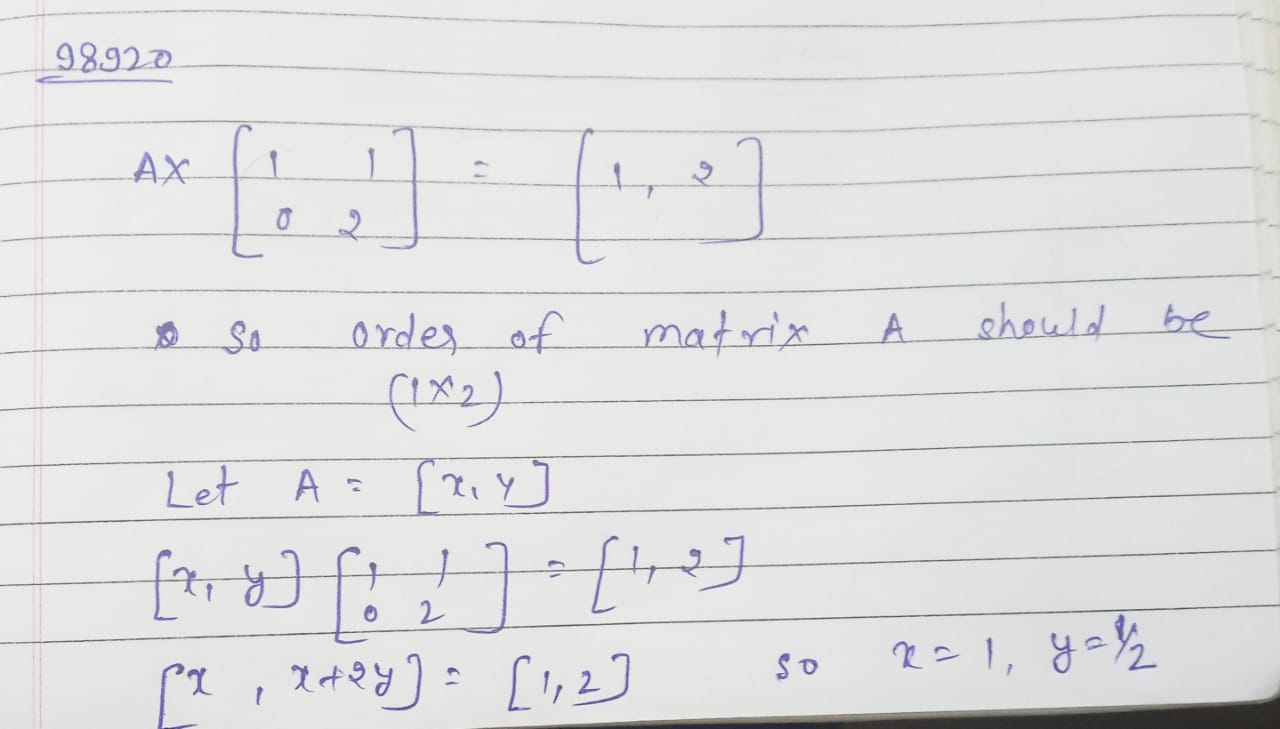 98920
AX [1 1 = [1, 2]
0 2]
So order of matrix A should be
(1×2)
Let A = [x, y]
[x, y] [1 1 = [1, 2]
0 2]
[x , x+2y] = [1,2] so x=1, y=1/2